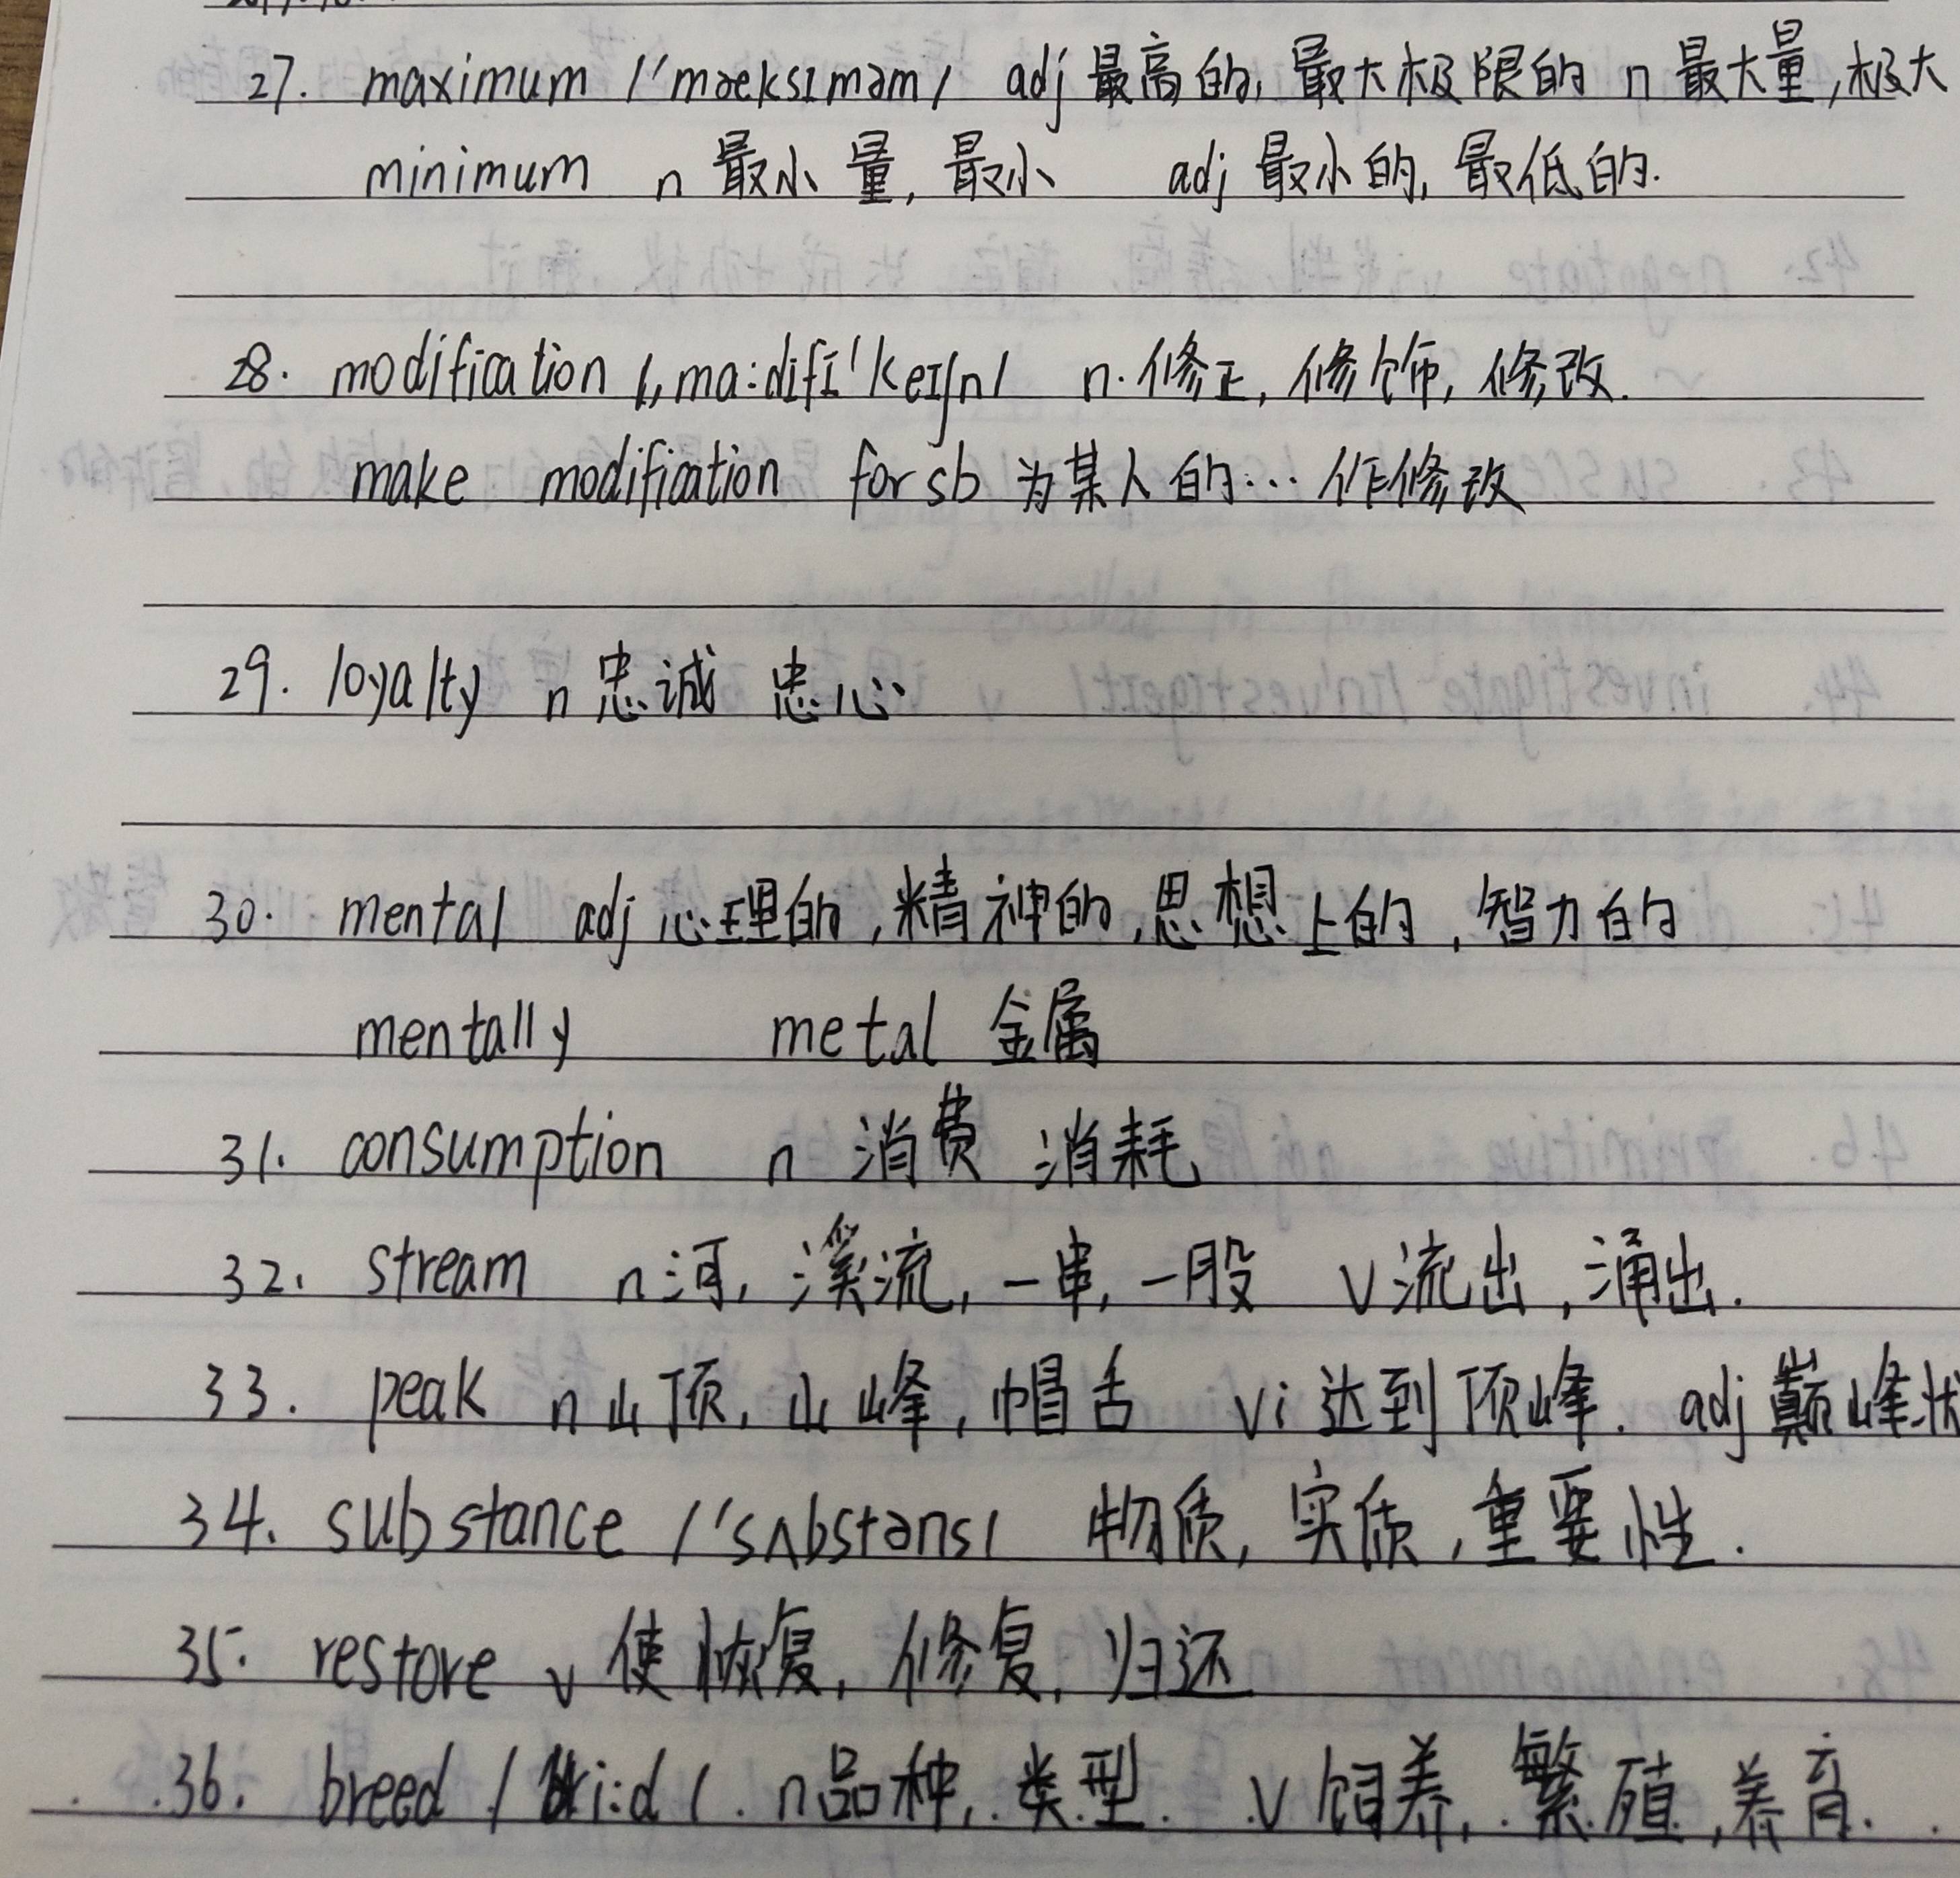 27. maximum /'mæksɪməm/ adj 最高的, 最大极限的 n 最大量,极大
minimum n 最小量, 最小 adj 最小的, 最低的.
28. modification /,ma:dɪfɪ'keɪʃn/ n. 修正, 修饰, 修改.
make modification for sb 为某人的… 作修改
29. loyalty n 忠诚 忠心
30. mental adj 心理的,精神的,思想上的,智力的
mentally metal 金属
31. consumption n 消费 消耗
32. stream n 河, 溪流, 一串, 一股 v 流出,涌出.
33. peak n 山顶, 山峰, 帽舌 vi 达到顶峰. adj 巅峰状
34. substance /'sʌbstəns/ 物质, 实质,重要性.
35. restore v 使恢复, 修复, 归还
36. breed /bri:d/. n 品种, 类型. v 饲养, 繁殖,养育.